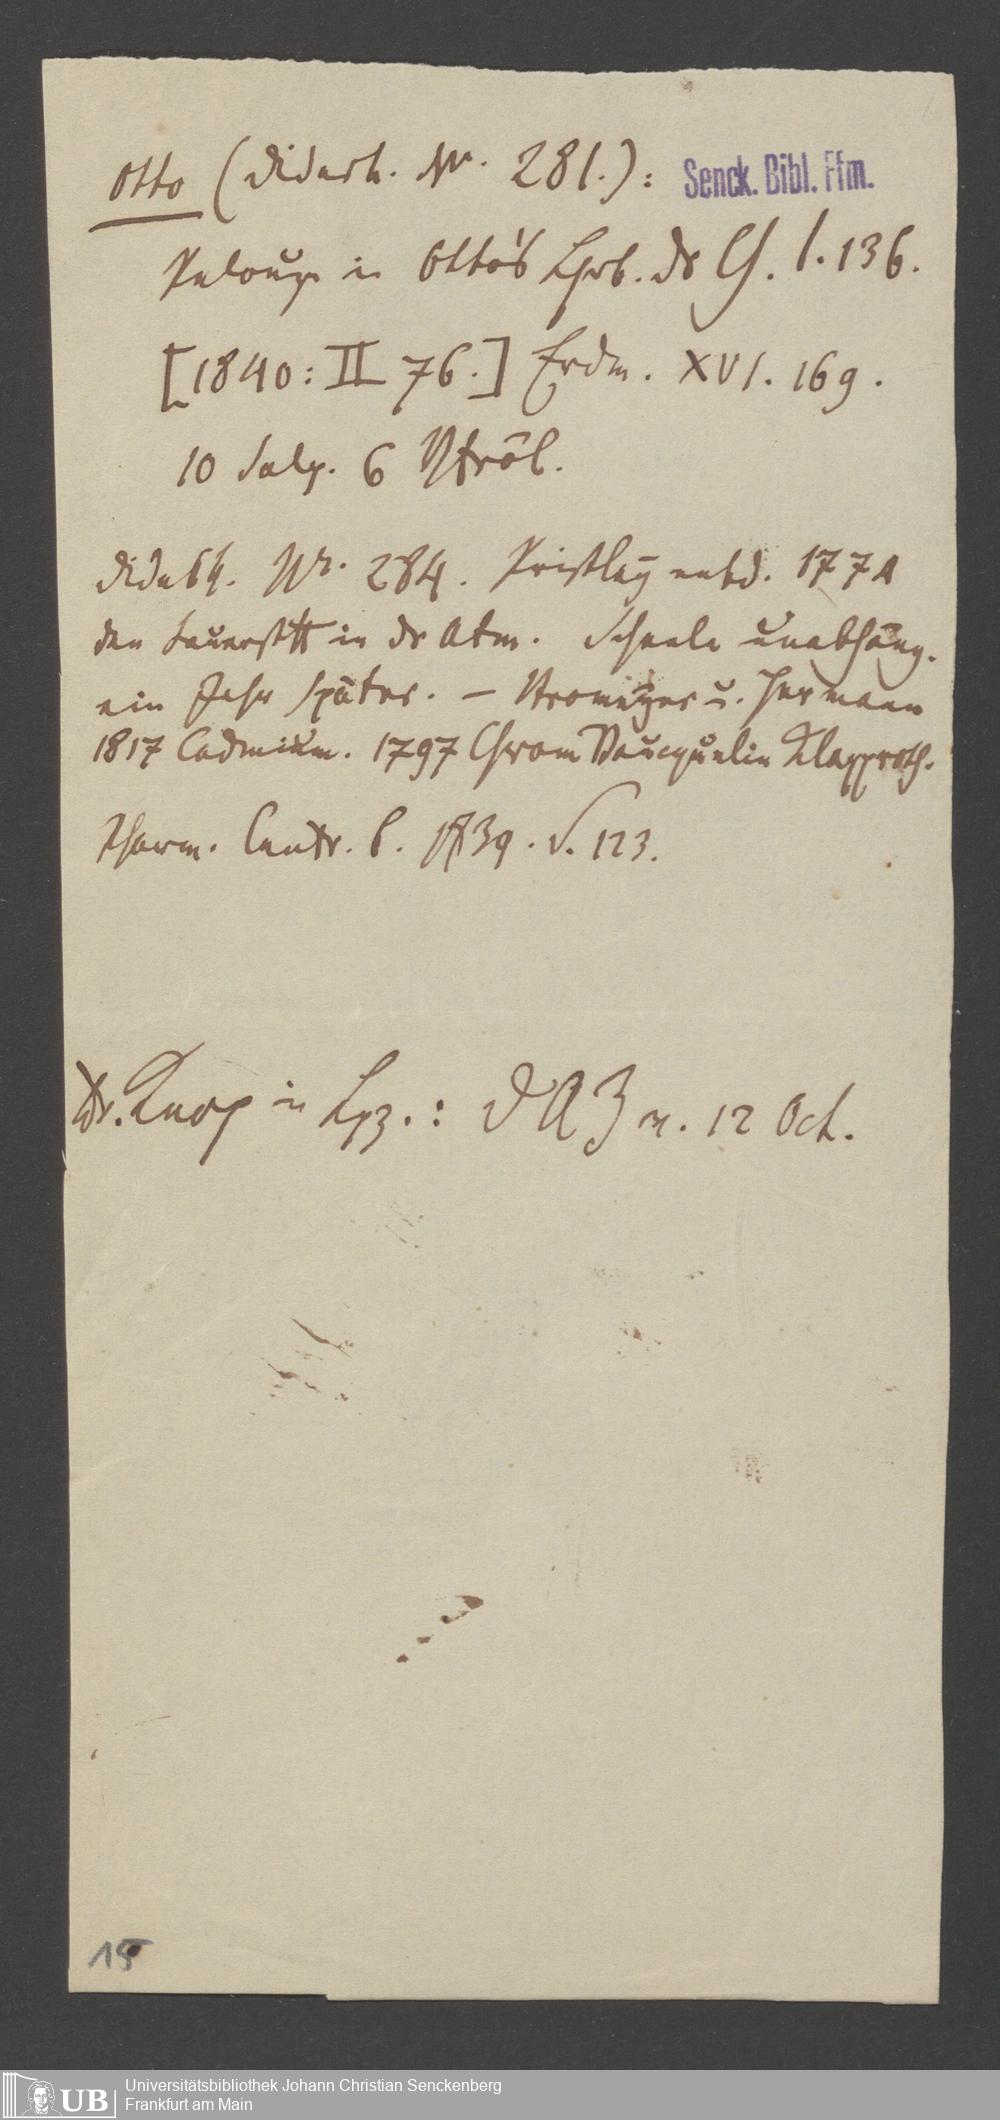 Otto (Didask. Nr. 281.): Senck. Bibl. Ffm.
Pelouze in Otto's Lehrb. dr Ch. I. 136.
[1840: II 76.] Erdm. XVI. 169.
10 Salp. 6 Vitröl.
Didask. Nr. 284. Pristley entd. 1774
den Sauerstff in dr Atm. Scheele unabhäng.
ein Jahr später. – Stromeyer u. Hermann
1817 Cadmium. 1797 Chrom Vaucquelin Klapproth.
Pharm. Centr. b. 1839. S. 123.
Dr. Knop in Lpz.: D A Z v. 12 Oct.
15
UB Universitätsbibliothek Johann Christian Senckenberg
Frankfurt am Main